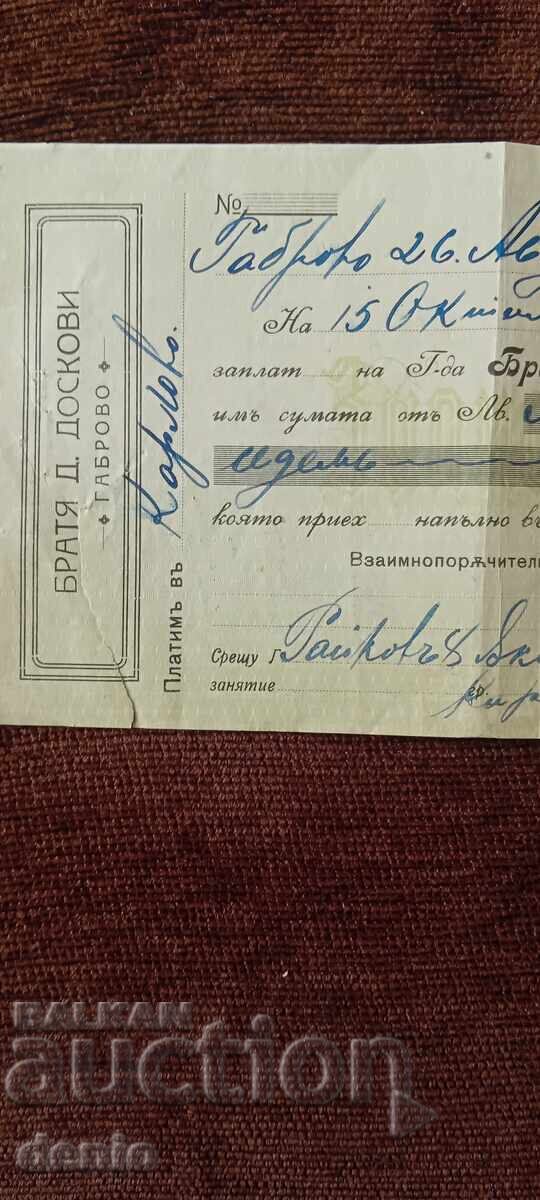 БРАТЯ Д. ДОСКОВИ
ГАБРОВО
Платимъ въ Карлово.
№
Габрово 26. Ав
На 15 Окт
заплат на Г-да Бр
имъ сумата отъ Лв.
идемъ
която приех напълно въ
Взаимнопорѫчители
Срещу Г Райковъ &
занятие гр.
BALKAN
auction
denfo